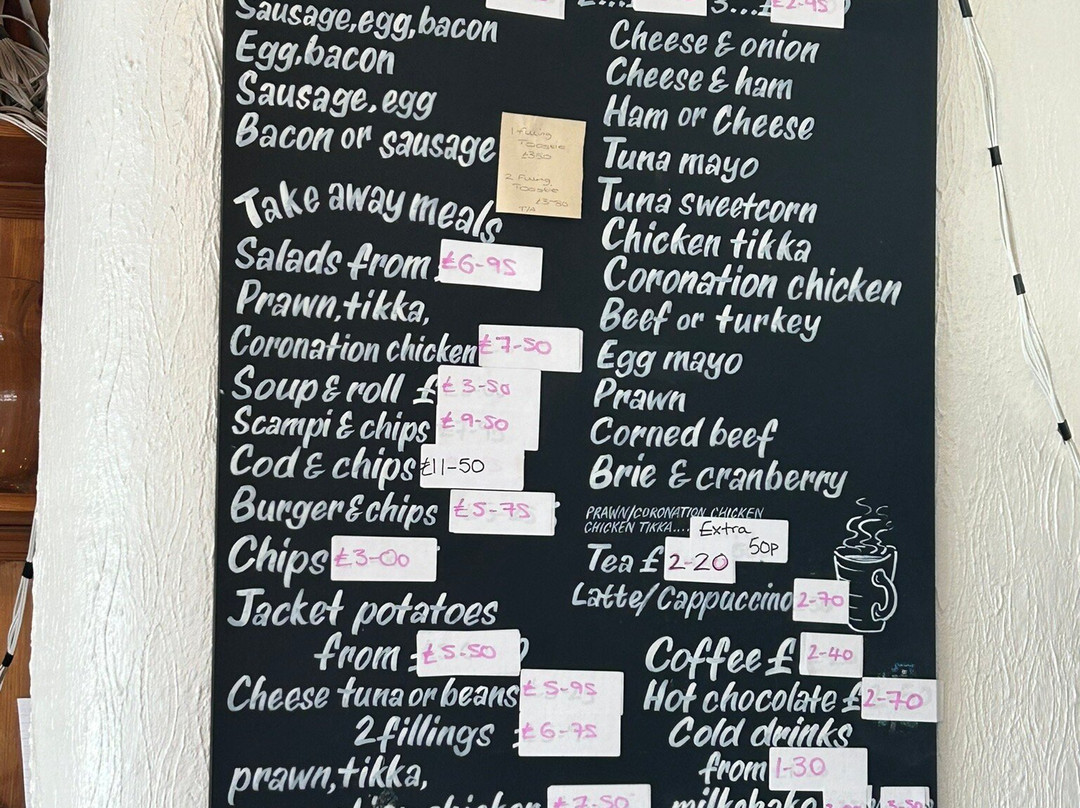 Sausage,egg,bacon
Egg,bacon
Sausage,egg
Bacon or sausage
1 Filling
Toastie
£3-50
2 Filling
Toastie
£3-80
T/A
Take away meals
Salads from £6-95
Prawn,tikka,
Coronation chicken £7-50
Soup & roll £ £3-50
Scampi & chips £9-50
Cod & chips £11-50
Burger & chips £5-75
Chips £3-00
Jacket potatoes
from £5-50
Cheese tuna or beans £5-95
2 fillings £6-75
prawn,tikka,
chicken £7-50
3...£2-95
Cheese & onion
Cheese & ham
Ham or Cheese
Tuna mayo
Tuna sweetcorn
Chicken tikka
Coronation chicken
Beef or turkey
Egg mayo
Prawn
Corned beef
Brie & cranberry
PRAWN/CORONATION CHICKEN
CHICKEN TIKKA.... Extra 50p
Tea £ 2-20
Latte/Cappuccino 2-70
Coffee £ 2-40
Hot chocolate £ 2-70
Cold drinks
from 1-30
milkshake